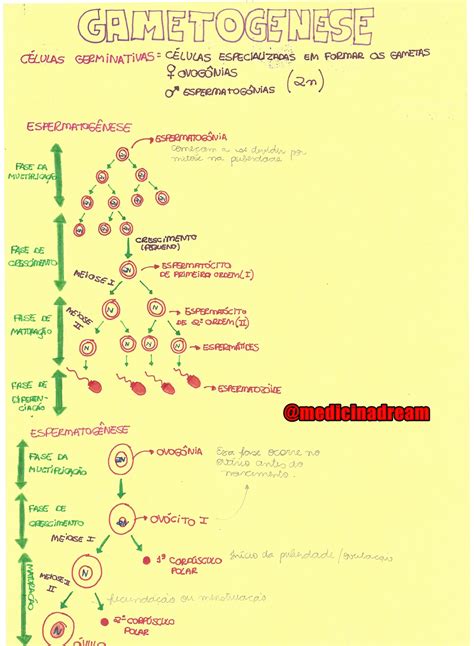 GAMETOGENESE
CÉLULAS GERMINATIVAS = CÉLULAS ESPECIALIZADAS EM FORMAR OS GAMETAS
♀ OVOGÔNIAS
♂ ESPERMATOGÔNIAS (2n)
ESPERMATOGÊNESE
FASE DA MULTIPLICAÇÃO
ESPERMATOGÔNIA
começam a se dividir por
na puberdade
2N
2N 2N
2N 2N 2N 2N
FASE DE CRESCIMENTO
CRESCIMENTO
(PEQUENO)
2N
ESPERMATÓCITO
DE PRIMEIRA ORDEM (I)
MEIOSE I
FASE DE MATURAÇÃO
N N
ESPERMATÓCITO
DE 2ª ORDEM (II)
MEIOSE II
N N N N
ESPERMÁTIDES
FASE DE
CIAÇÃO
ESPERMATOZÓIDE
@medicinadream
ESPERMATOGÊNESE
FASE DA MULTIPLICAÇÃO
2N
OVOGÔNIA
Essa fase ocorre no
ovário antes do
nascimento.
FASE DE CRESCIMENTO
2N
OVÓCITO I
MEIOSE I
1º CORPÚSCULO
POLAR
Início da puberdade / ovulação
MATURAÇÃO
N
MEIOSE II
fecundação ou menstruação
N
2º CORPÚSCULO
POLAR
ÓVULO